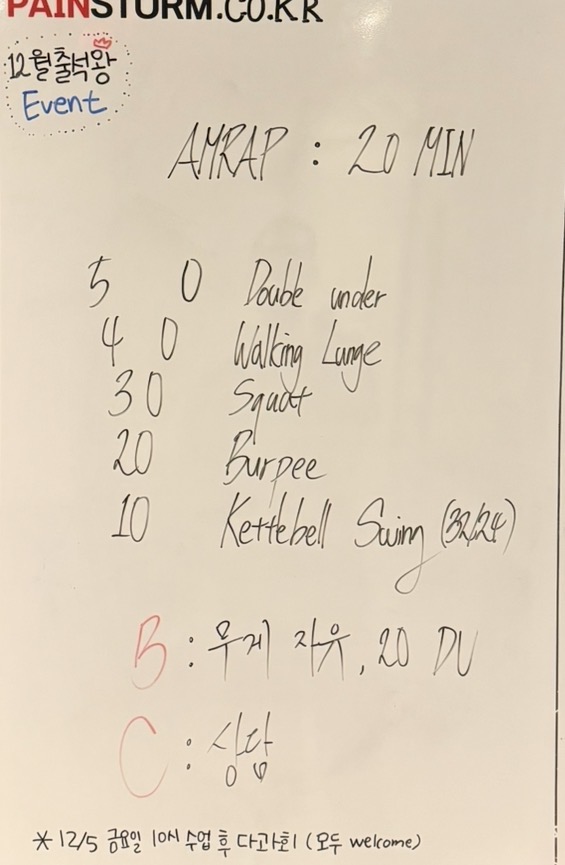 PAINSTORM.CO.KR
12월 출석왕
Event
AMRAP : 20 MIN
50 Double under
40 Walking Lunge
30 Squat
20 Burpee
10 Kettlebell Swing (32/24)
B : 무게 자유, 20 DU
C : 상담
* 12/5 금요일 10시 수업 후 다과회 (모두 welcome)